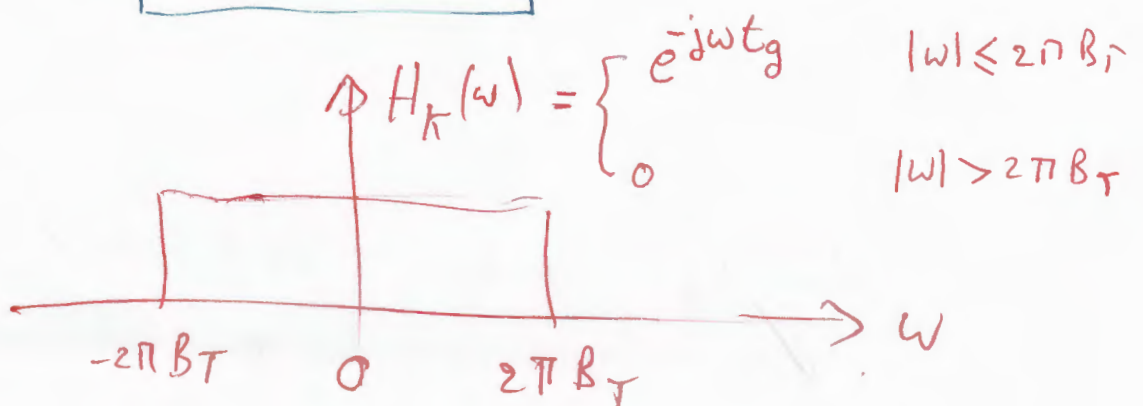 H_K(ω) = { e^{-jωt_g} |ω| ≤ 2π B_T
0 |ω| > 2π B_T
-2π B_T 0 2π B_T ω